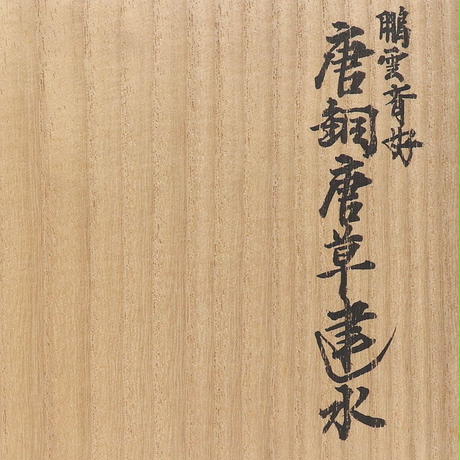 鵬雲斎好
唐銅唐草建水